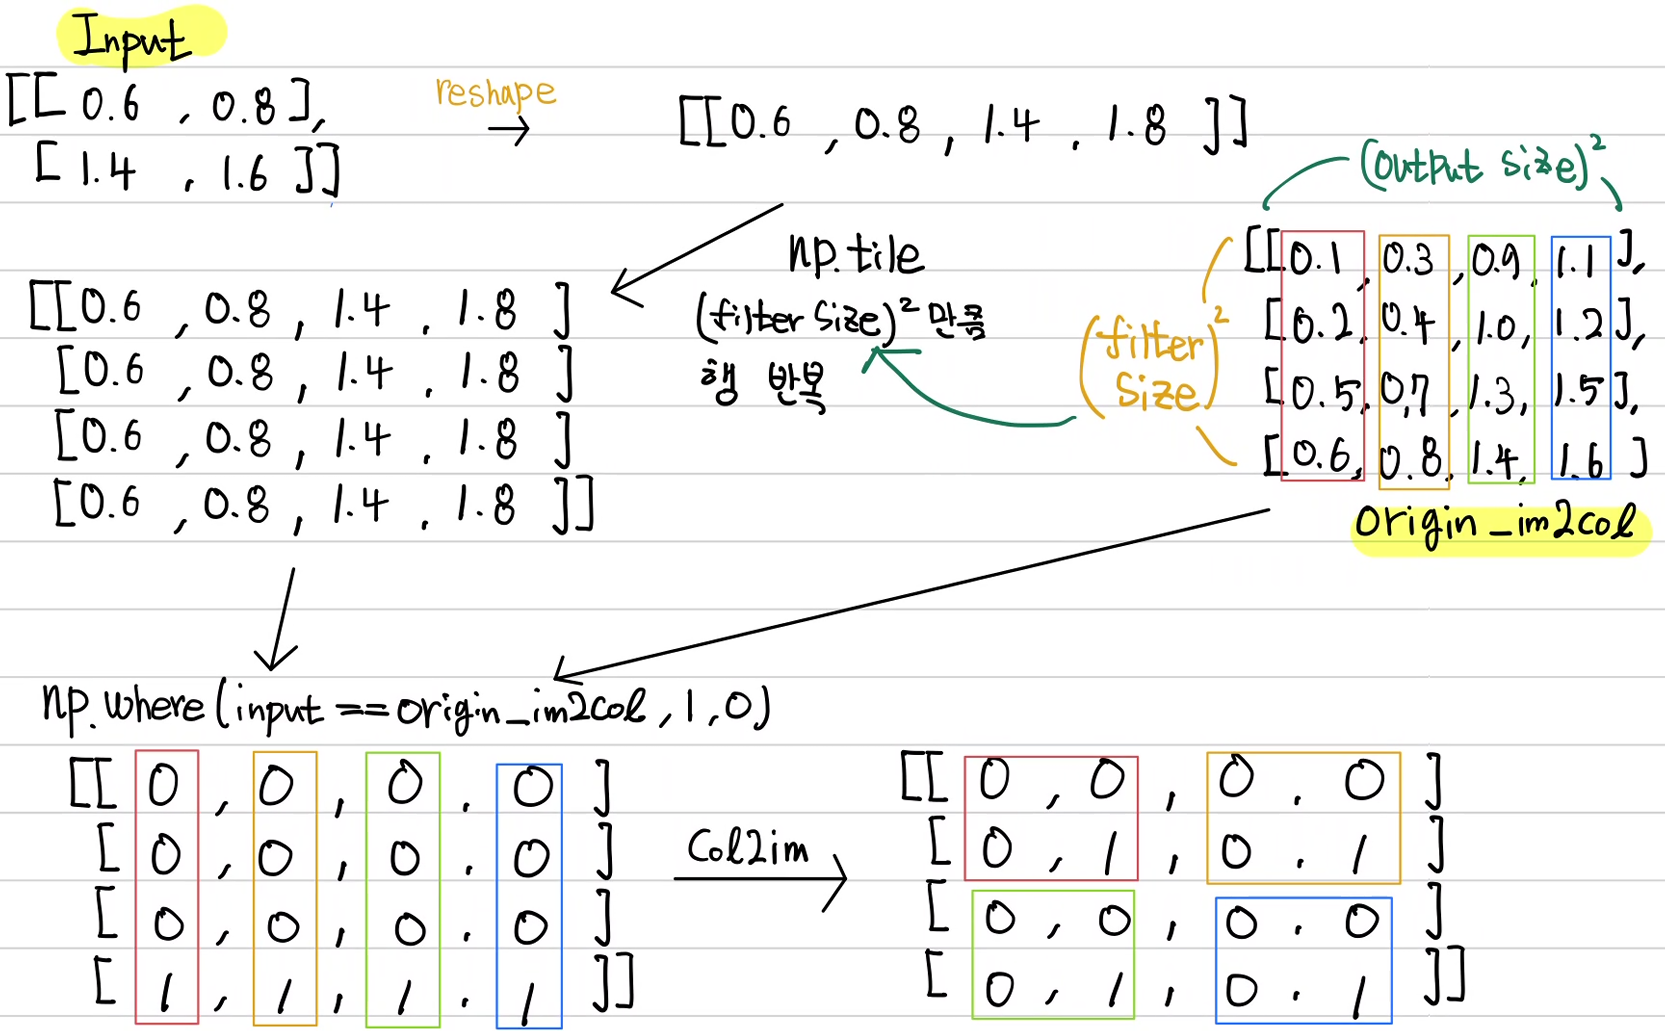 Input
[[ 0.6 , 0.8 ],
[ 1.4 , 1.6 ]]
reshape
→
[[0.6 , 0.8 , 1.4 , 1.8 ]]
(output size)²
np.tile
(filter size)² 만큼
행 반복
(filter size)²
[[0.1, 0.3, 0.9, 1.1],
[0.2, 0.4, 1.0, 1.2],
[0.5, 0.7, 1.3, 1.5],
[0.6, 0.8, 1.4, 1.6]
origin_im2col
[[0.6 , 0.8 , 1.4 , 1.8 ]
[0.6 , 0.8 , 1.4 , 1.8 ]
[0.6 , 0.8 , 1.4 , 1.8 ]
[0.6 , 0.8 , 1.4 , 1.8 ]]
np.where(input == origin_im2col, 1, 0)
[[ 0 , 0 , 0 , 0 ]
[ 0 , 0 , 0 , 0 ]
[ 0 , 0 , 0 , 0 ]
[ 1 , 1 , 1 , 1 ]]
Col2im
[[ 0 , 0 , 0 , 0 ]
[ 0 , 1 , 0 , 1 ]
[ 0 , 0 , 0 , 0 ]
[ 0 , 1 , 0 , 1 ]]